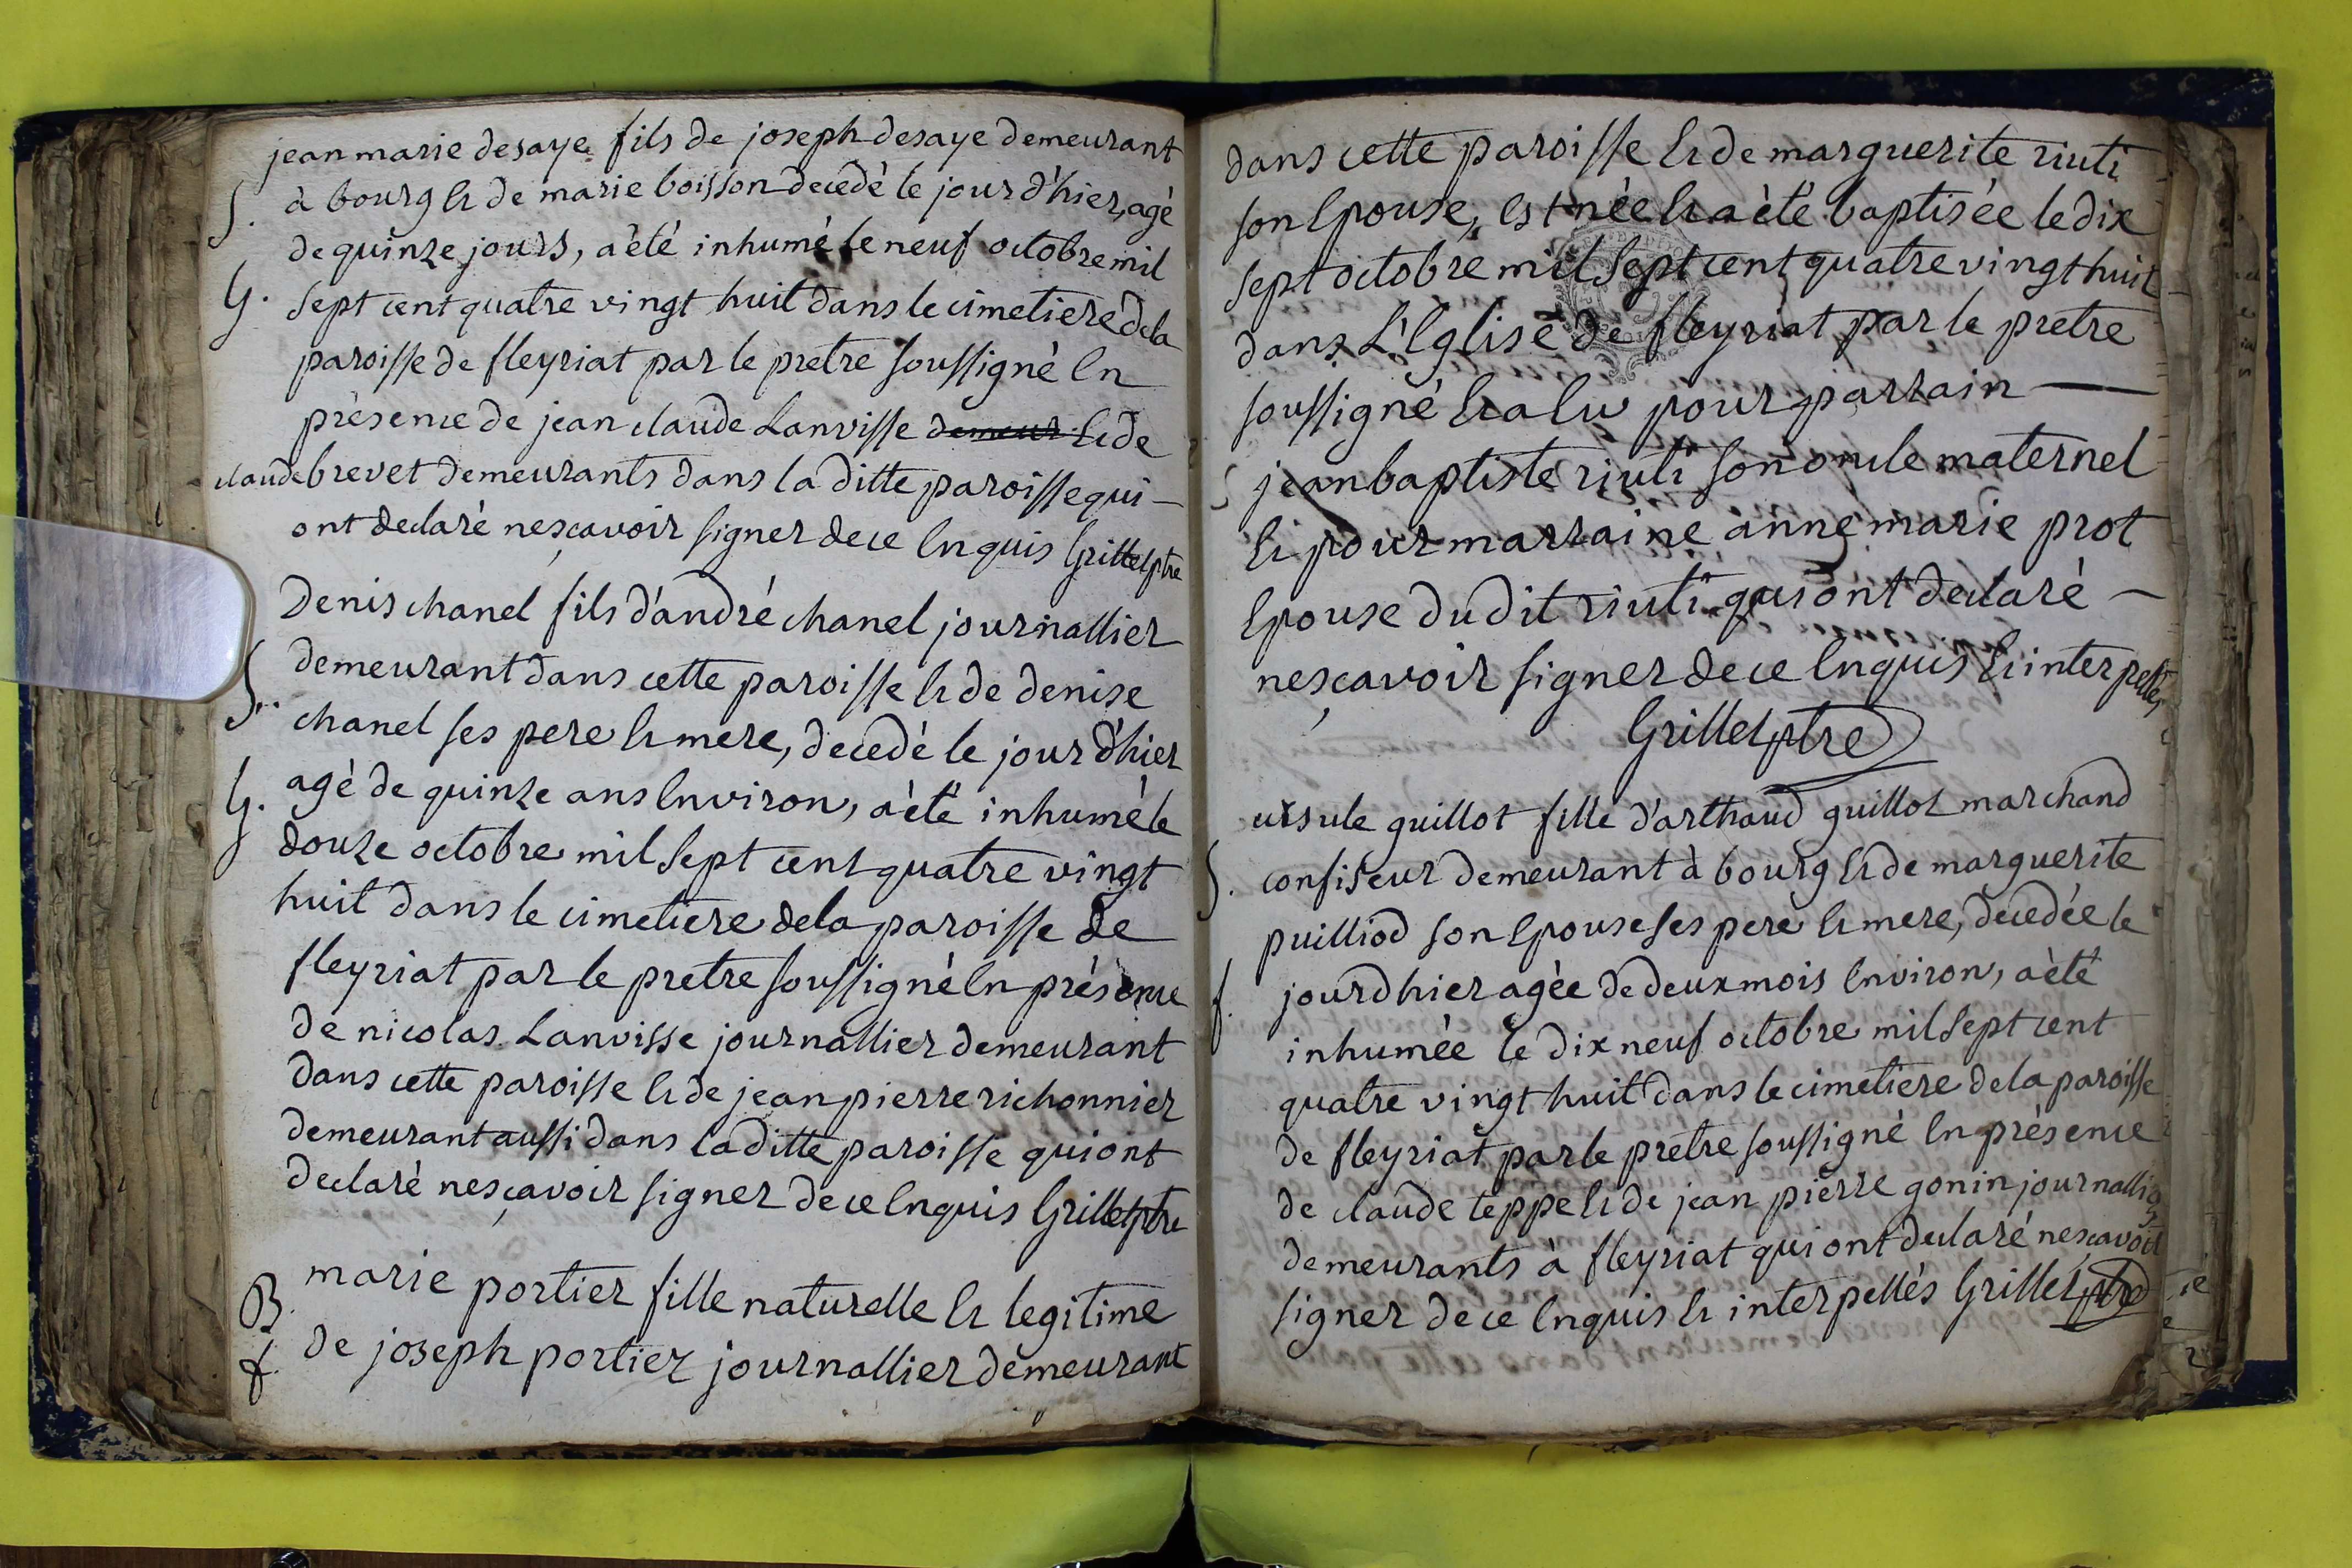 jean marie desaye fils de joseph desaye demeurant
S. à bourg et de marie boisson decedé le jour d'hier, agé
de quinze jours, a été inhumé le neuf octobre mil
G. sept cent quatre vingt huit dans le cimetiere de la
paroisse de fleyriat par le pretre soussigné en
présence de jean claude Lanvisse demeur et de
claude brevet demeurants dans la ditte paroisse qui
ont declaré nesçavoir signer de ce enquis Grillet ptre
Denis chanel fils d'andré chanel journallier
S. demeurant dans cette paroisse et de denise
chanel ses pere et mere, decedé le jour d'hier
G. agé de quinze ans environ, a été inhumé le
douze octobre mil sept cent quatre vingt
huit dans le cimetiere de la paroisse de
fleyriat par le pretre soussigné en présence
de nicolas Lanvisse journallier demeurant
dans cette paroisse et de jean pierre richonnier
demeurant aussi dans la ditte paroisse qui ont
declaré nesçavoir signer de ce enquis Grillet ptre
B. marie portier fille naturelle et legitime
f. de joseph portier journallier demeurant
dans cette paroisse et de marguerite riuti
son epouse, est née et a été baptisée le dix
sept octobre mil sept cent quatre vingt huit
dans L'Eglise de fleyriat par le pretre
soussigné et a eu pour parrain
jean baptiste riuti son oncle maternel
et pour marraine anne marie prot
epouse du dit riuti qui ont declaré
nesçavoir signer de ce enquis et interpellés
Grillet ptre
ursule guillot fille d'arthaud guillot marchand
S. confiseur demeurant à bourg et de marguerite
puilliod son epouse ses pere et mere, decedée le
f. jour d'hier agée de deux mois environ, a été
inhumée le dix neuf octobre mil sept cent
quatre vingt huit dans le cimetiere de la paroisse
de fleyriat par le pretre soussigné en présence
de claude teppe et de jean pierre gonin journalliers
demeurants à fleyriat qui ont declaré nesçavoir
signer de ce enquis et interpellés Grillet ptre